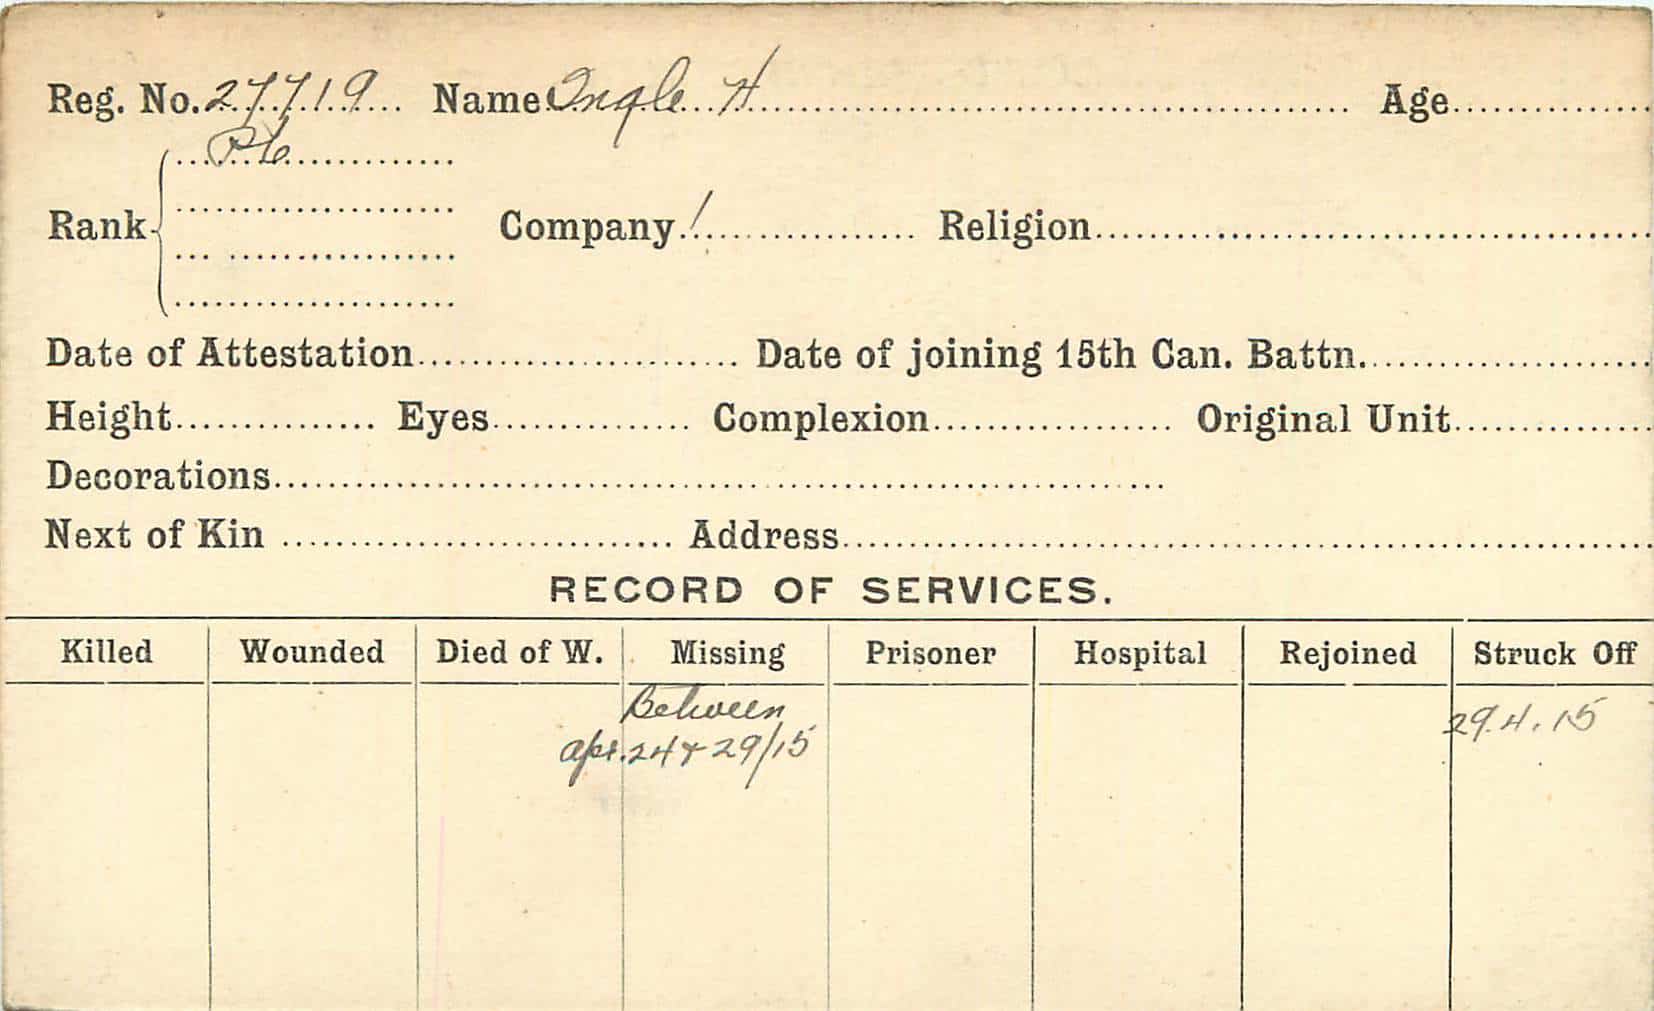 Reg. No. 27719 Name Ingle H Age
Pte
Rank Company 1 Religion
Date of Attestation Date of joining 15th Can. Battn.
Height Eyes Complexion Original Unit
Decorations
Next of Kin Address
RECORD OF SERVICES.
Killed Wounded Died of W. Missing Prisoner Hospital Rejoined Struck Off
Between 29.4.15
Apr. 24 & 29/15